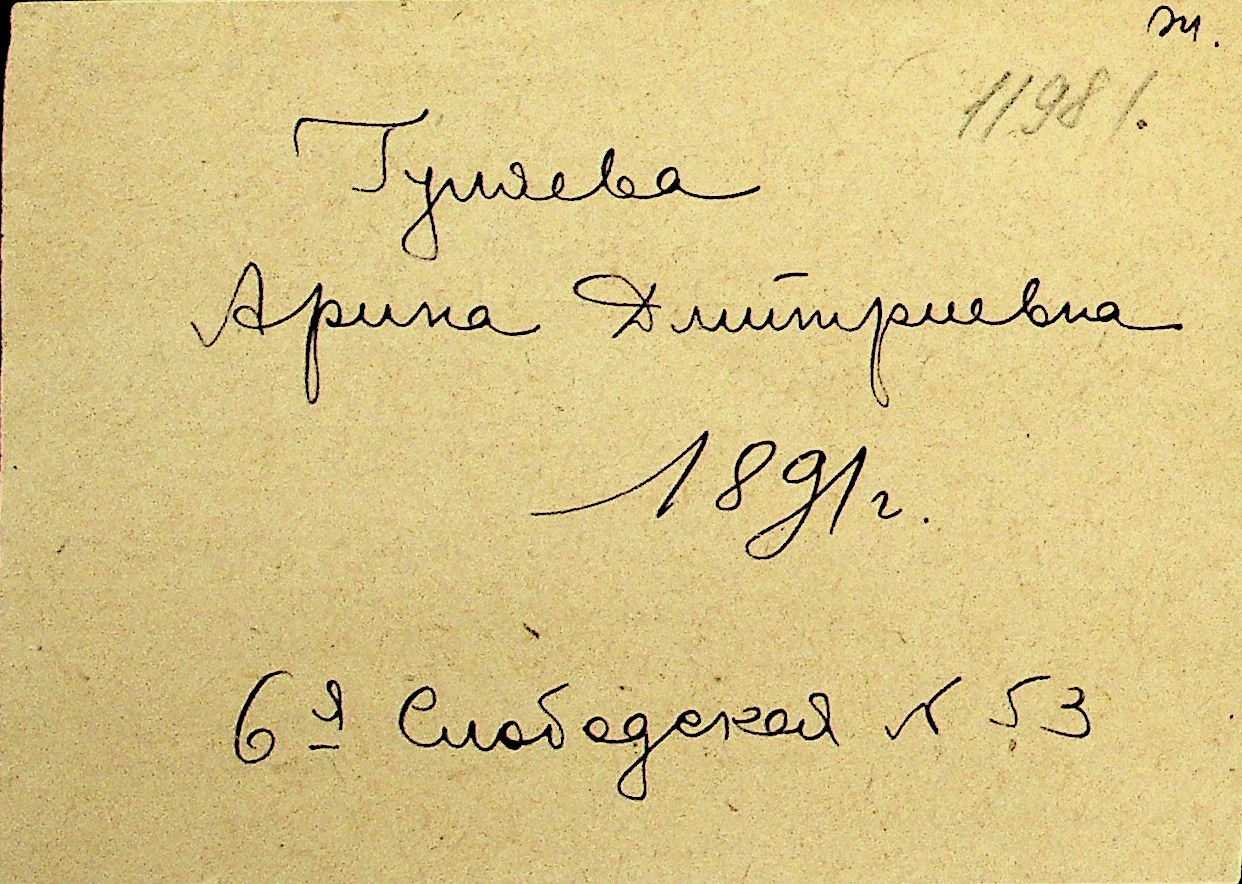 11981.
Гуляева
Арина Дмитриевна
1891 г.
6я Слободская № 53